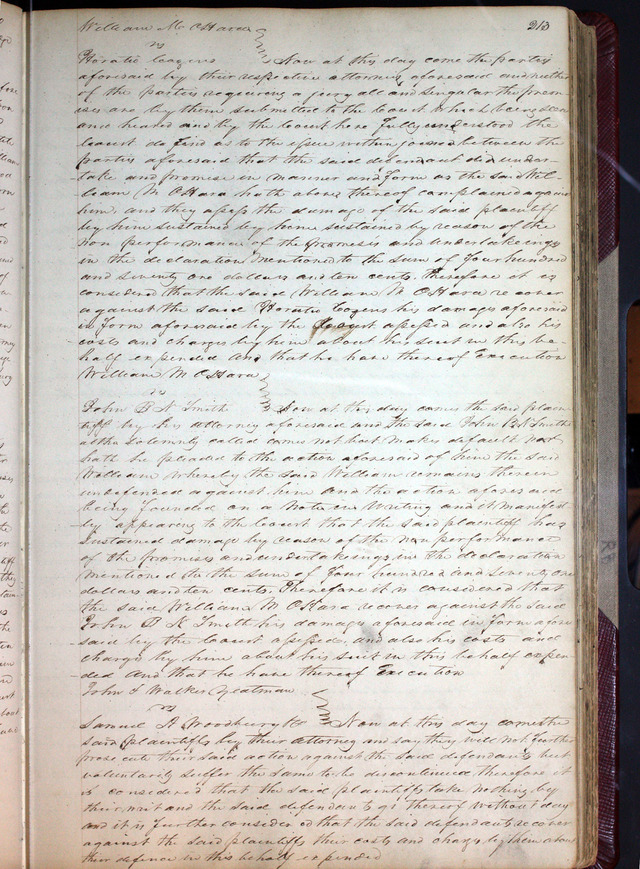 213
William M OHara
vs
Horatio Cozens } Now at this day come the parties
aforesaid by their respective attorneys aforesaid and neither
of the parties requiring a jury all and singular the prem-
ises are by them submitted to the Court which being seen
and heard and by the Court here fully understood the
Court do find as to the issue within joined between the
parties aforesaid that the said defendant did under-
take and promise in manner and form as the said Wil-
liam M OHara hath above thereof complained against
him, and they assess the damage of the said plaintiff
by him sustained by him sustained by reason of the
non performance of the promises and undertakings
in the declaration mentioned to the sum of four hundred
and seventy one dollars and ten cents. Therefore it is
considered that the said William M OHara recover
against the said Horatio Cozens his damages aforesaid
in form aforesaid by the Court assessed and also his
costs and charges by him about his suit in this be-
half expended and that he have thereof Execution
William M OHara
vs
John B N Smith } Now at this day comes the said plain-
tiff by his attorney aforesaid and the said John B N Smith
altho solemnly called comes not but makes default nor
hath he pleaded to the action aforesaid of him the said
William whereby the said William remains therein
undefended against him and the action aforesaid
being founded on a Note in Writing and it manifest-
ly appearing to the Court that the said plaintiff has
sustained damage by reason of the non performance
of the promises and undertakings in the declaration
mentioned to the sum of four hundred and seventy one
dollars and ten cents. Therefore it is considered that
the said William M OHara recover against the said
John B N Smith his damages aforesaid in form afore
said by the Court assessed, and also his costs and
charges by him about his suit in this behalf expen-
ded and that he have thereof Execution
John S Walker Yeatman
vs
Samuel A Woodbury &c } Now at this day comes the
said plaintiffs by their attorney and say they will not further
prosecute their said action against the said defendants but
voluntarily suffer the same to be discontinued therefore it
is considered that the said plaintiffs take nothing by
their writ and the said defendants go thereof without day
and it is further considered that the said defendants recover
against the said plaintiffs their costs and charges by them about
their defence in this behalf expended